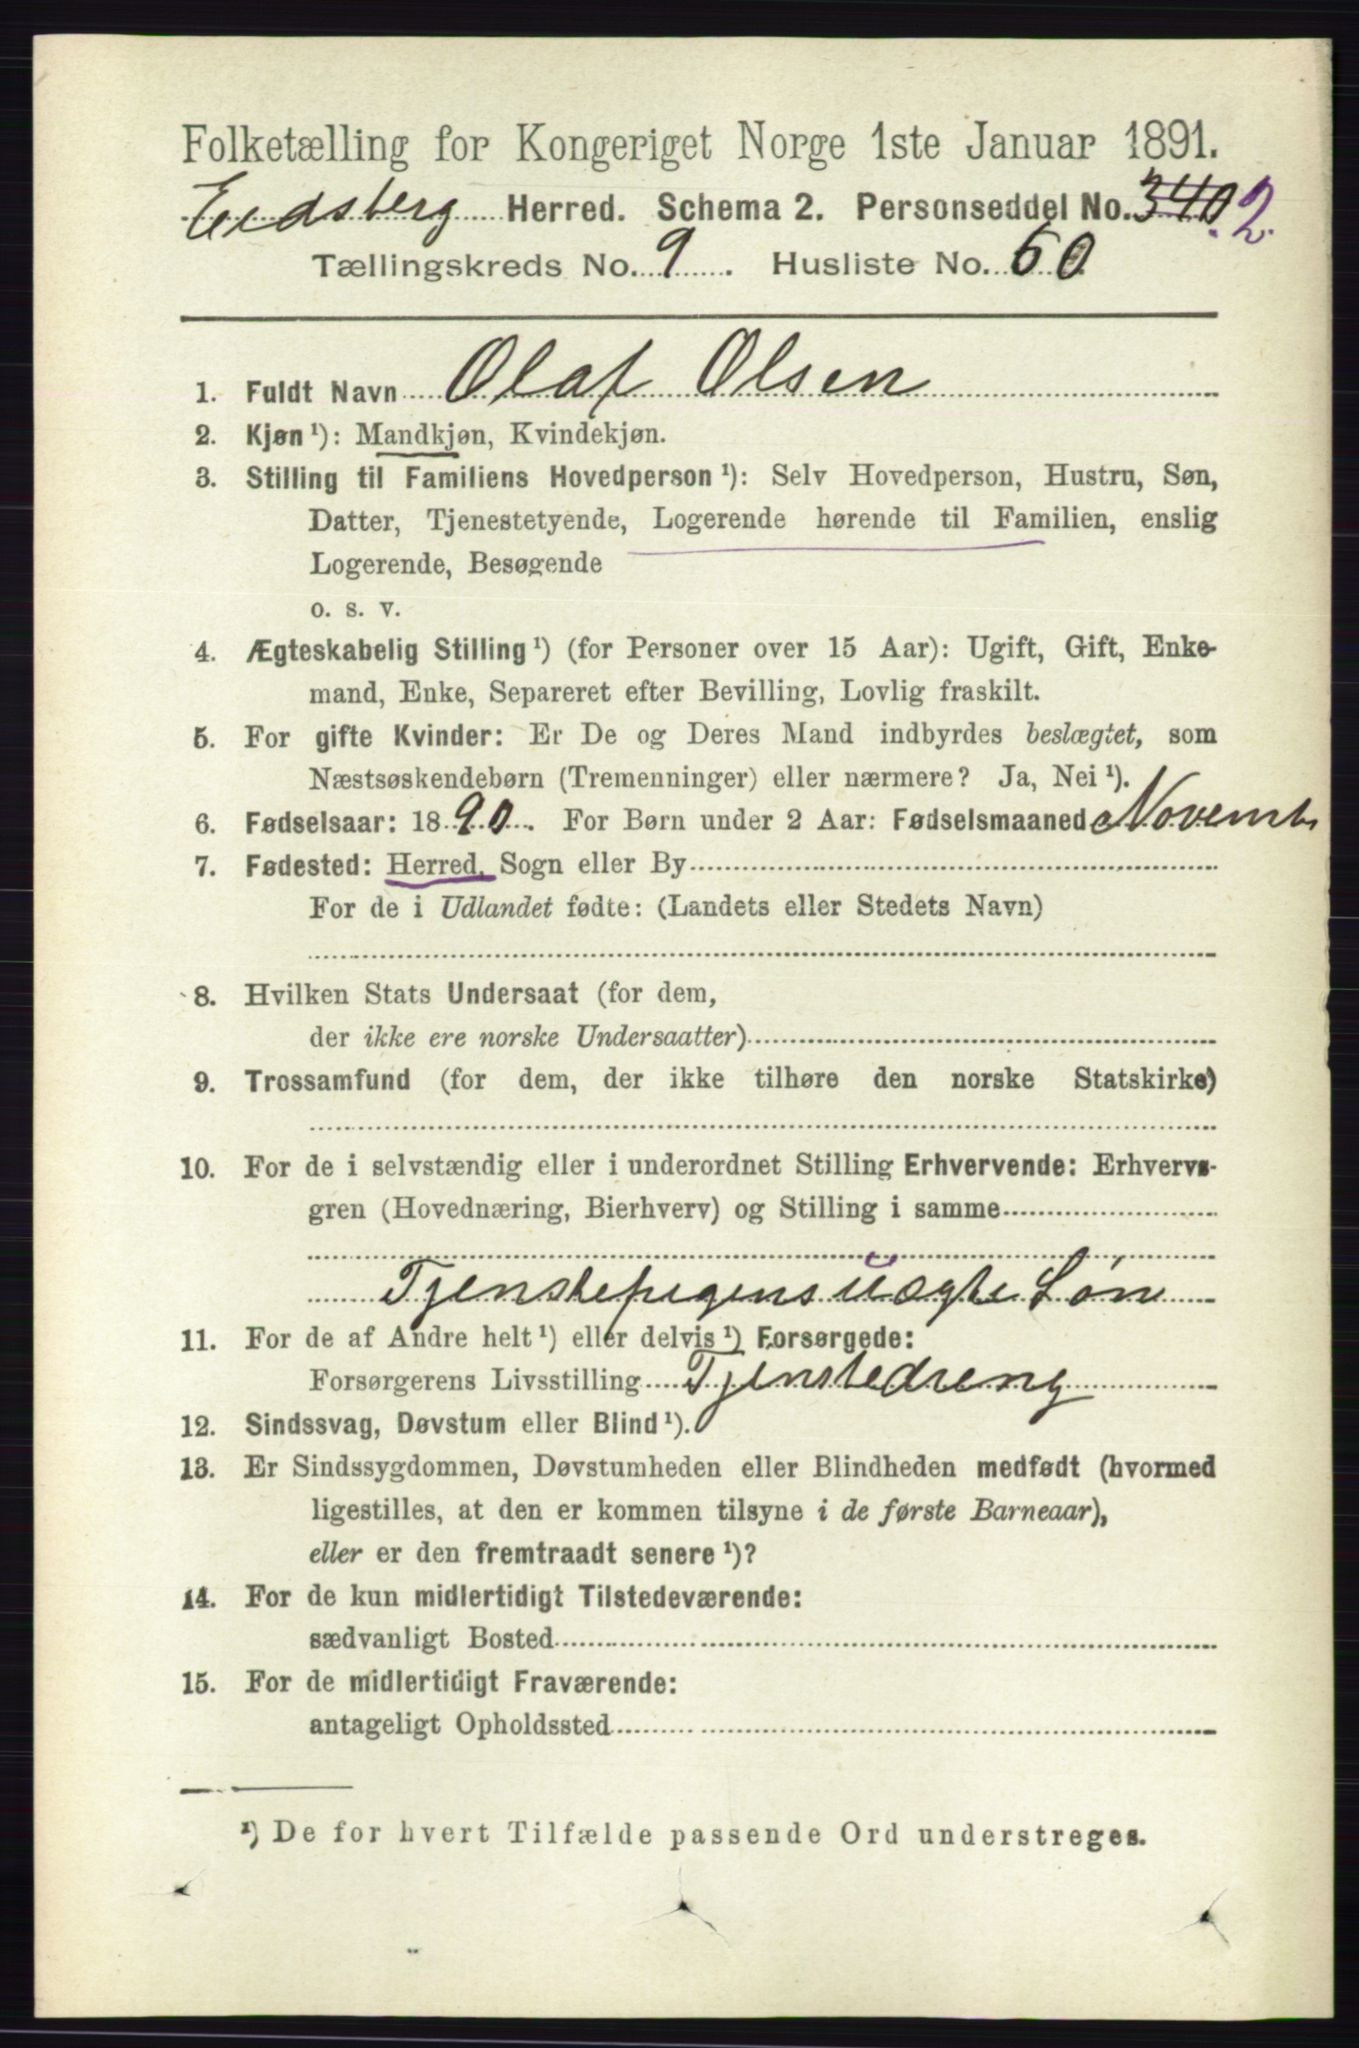 Folketælling for Kongeriget Norge 1ste Januar 1891.
Eidsberg Herred. Schema 2. Personseddel No. 340 2.
Tællingskreds No. 9. Husliste No. 60
1. Fuldt Navn Olaf Olsen
2. Kjøn ¹): Mandkjøn, Kvindekjøn.
3. Stilling til Familiens Hovedperson ¹): Selv Hovedperson, Hustru, Søn,
Datter, Tjenestetyende, Logerende hørende til Familien, enslig
Logerende, Besøgende
o. s. v.
4. Ægteskabelig Stilling ¹) (for Personer over 15 Aar): Ugift, Gift, Enke-
mand, Enke, Separeret efter Bevilling, Lovlig fraskilt.
5. For gifte Kvinder: Er De og Deres Mand indbyrdes beslægtet, som
Næstsøskendebørn (Tremenninger) eller nærmere? Ja, Nei ¹).
6. Fødselsaar: 1890. For Børn under 2 Aar: Fødselsmaaned Novemb
7. Fødested: Herred, Sogn eller By
For de i Udlandet fødte: (Landets eller Stedets Navn)
8. Hvilken Stats Undersaat (for dem,
der ikke ere norske Undersaatter)
9. Trossamfund (for dem, der ikke tilhøre den norske Statskirke)
10. For de i selvstændig eller i underordnet Stilling Erhvervende: Erhvervs-
gren (Hovednæring, Bierhverv) og Stilling i samme
Tjenstepigens uægte Søn
11. For de af Andre helt ¹) eller delvis ¹) Forsørgede:
Forsørgerens Livsstilling Tjenstedreng
12. Sindssvag, Døvstum eller Blind ¹).
13. Er Sindssygdommen, Døvstumheden eller Blindheden medfødt (hvormed
ligestilles, at den er kommen tilsyne i de første Barneaar),
eller er den fremtraadt senere ¹)?
14. For de kun midlertidigt Tilstedeværende:
sædvanligt Bosted
15. For de midlertidigt Fraværende:
antageligt Opholdssted
¹) De for hvert Tilfælde passende Ord understreges.